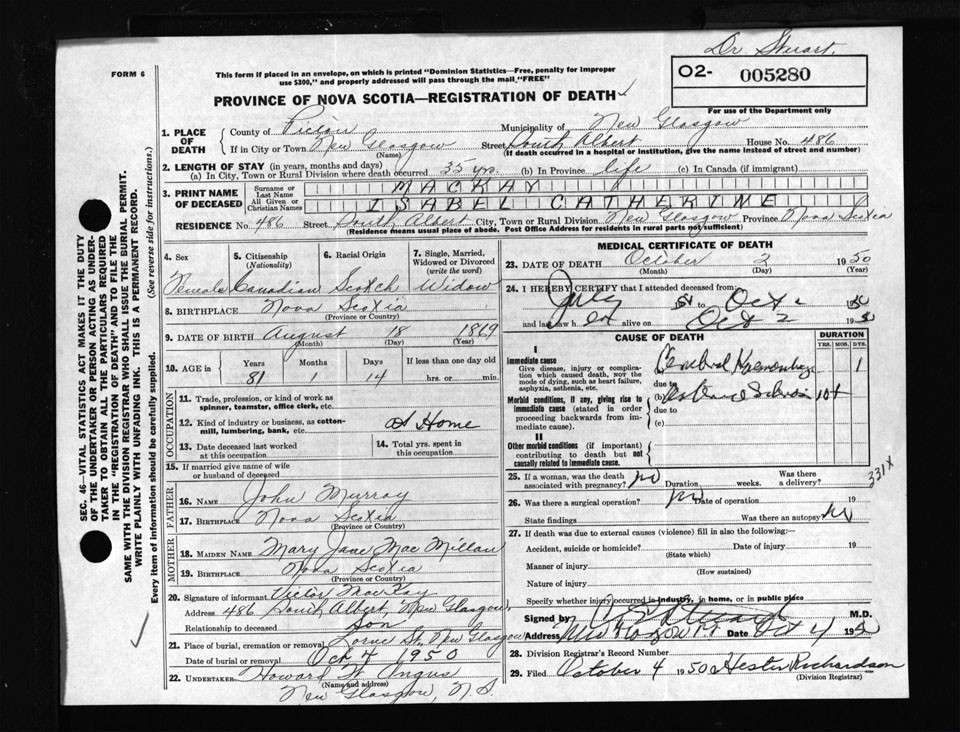 Dr Stuart.
FORM 6
This form if placed in an envelope, on which is printed "Dominion Statistics—Free, penalty for improper
use $300," and properly addressed will pass through the mail "FREE"
O2- 005280
For use of the Department only
PROVINCE OF NOVA SCOTIA—REGISTRATION OF DEATH
1. PLACE OF DEATH
County of Pictou Municipality of New Glasgow
If in City or Town New Glasgow Street South Albert House No. 486
(Name) (If death occurred in a hospital or institution, give the name instead of street and number)
2. LENGTH OF STAY (in years, months and days)
(a) In City, Town or Rural Division where death occurred 35 yrs. (b) In Province life (c) In Canada (if immigrant)
3. PRINT NAME OF DECEASED
Surname or Last Name MACKAY
All Given or Christian Names ISABEL CATHERINE
RESIDENCE No. 486 Street South Albert City, Town or Rural Division New Glasgow Province Nova Scotia
(Residence means usual place of abode. Post Office Address for residents in rural parts not sufficient)
4. Sex 5. Citizenship (Nationality) 6. Racial Origin 7. Single, Married, Widowed or Divorced (write the word)
Female Canadian Scotch Widow
8. BIRTHPLACE Nova Scotia
(Province or Country)
9. DATE OF BIRTH August 18 1869
(Month) (Day) (Year)
10. AGE in Years Months Days If less than one day old
81 1 14 hrs. or min.
OCCUPATION
11. Trade, profession, or kind of work as
spinner, teamster, office clerk, etc.
12. Kind of industry or business, as cotton-
mill, lumbering, bank, etc. At Home
13. Date deceased last worked
at this occupation
14. Total yrs. spent in
this occupation
15. If married give name of wife
or husband of deceased
FATHER
16. Name John Murray
17. Birthplace Nova Scotia
(Province or Country)
MOTHER
18. MAIDEN NAME Mary Jane MacMillan
19. BIRTHPLACE Nova Scotia
(Province or Country)
20. Signature of informant Victor MacKay
Address 486 South Albert, New Glasgow,
Relationship to deceased son
21. Place of burial, cremation or removal Lorne St. New Glasgow
Date of burial or removal Oct 4 1950
22. UNDERTAKER Howard W. Angus
(Name and address)
New Glasgow, N.S.
MEDICAL CERTIFICATE OF DEATH
23. DATE OF DEATH October 2 1950
(Month) (Day) (Year)
24. I HEREBY CERTIFY that I attended deceased from:
July 50 to Oct 2 1950
and last saw her alive on Oct 2 1950
CAUSE OF DEATH DURATION
YRS. MOS. DYS.
I
Immediate cause
Give disease, injury or complica-
tion which caused death, not the
mode of dying, such as heart failure,
asphyxia, asthenia, etc.
Cerebral Hemorrhage 1
due to
(b) 10+
Morbid conditions, if any, giving rise to
immediate cause (stated in order
proceeding backwards from im-
mediate cause).
due to
(c)
II
Other morbid conditions (if important)
contributing to death but not
causally related to immediate cause.
25. If a woman, was the death
associated with pregnancy? no Duration weeks. Was there
a delivery?
331X
26. Was there a surgical operation? no Date of operation 19
State findings Was there an autopsy? no
27. If death was due to external causes (violence) fill in also the following:
Accident, suicide or homicide? Date of injury 19
(State which)
Manner of injury
(How sustained)
Nature of injury
Specify whether injury occurred in industry, in home, or in public place
Signed by M.D.
Address New Glasgow Date Oct 4 1950
28. Division Registrar's Record Number
29. Filed October 4 1950 Hester Richardson
(Division Registrar)
SEC. 46—VITAL STATISTICS ACT MAKES IT THE DUTY
OF THE UNDERTAKER OR PERSON ACTING AS UNDER-
TAKER TO OBTAIN ALL THE PARTICULARS REQUIRED
IN THE "REGISTRATION OF DEATH" AND TO FILE THE
SAME WITH THE DIVISION REGISTRAR WHO SHALL ISSUE THE BURIAL PERMIT.
WRITE PLAINLY WITH UNFADING INK. THIS IS A PERMANENT RECORD.
Every item of information should be carefully supplied. (See reverse side for instructions.)